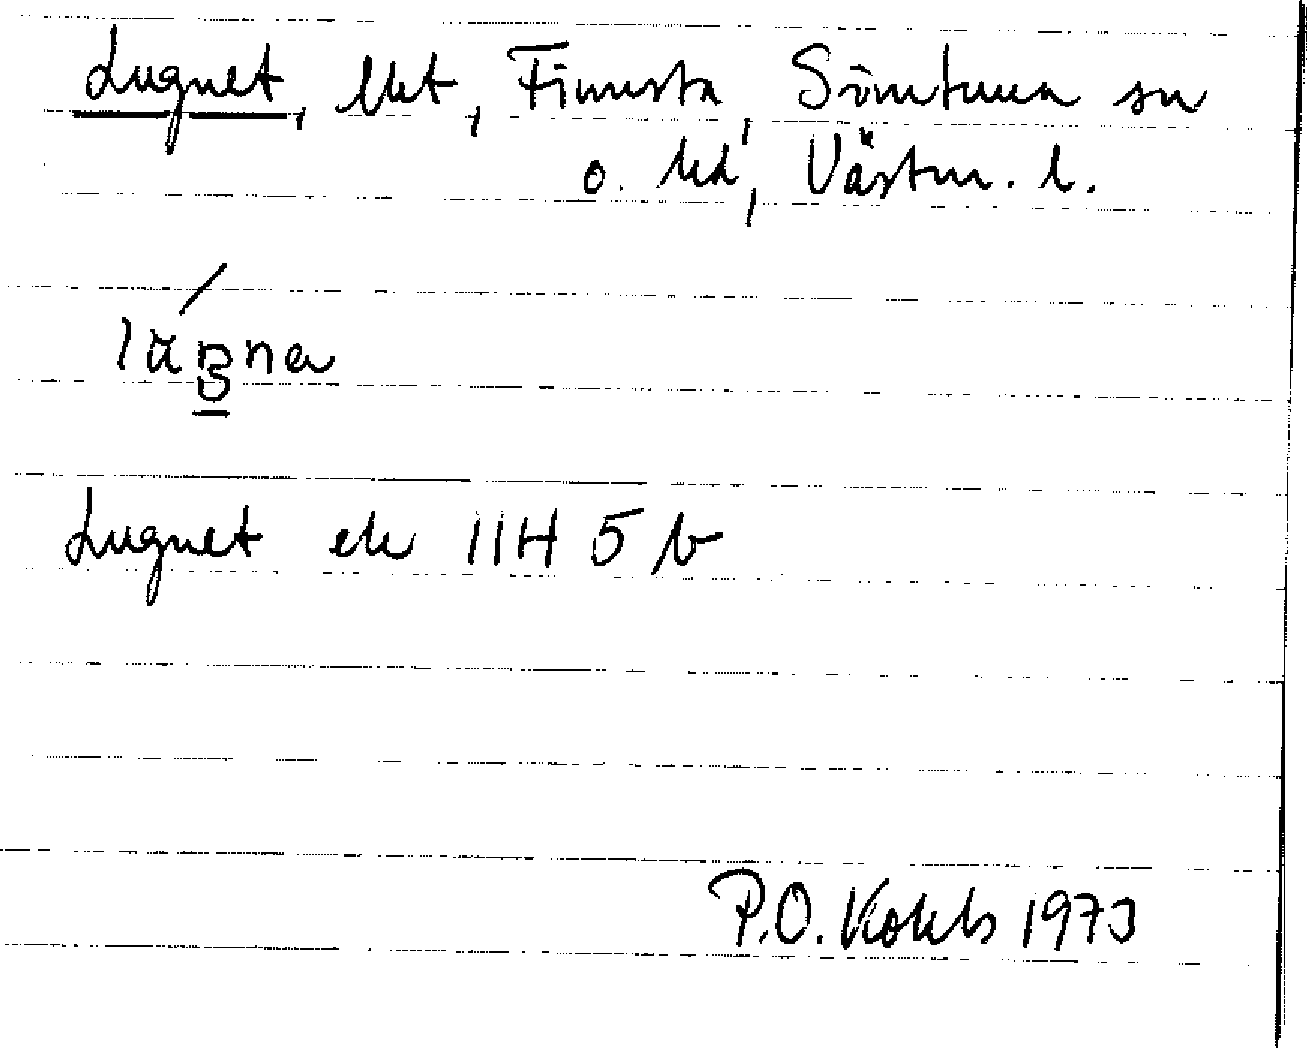 Lugnet, lht, Finnsta, Simtuna sn
o. hd, Västm. l.
Lugnet ek 11H 5 b
P.O. 1973